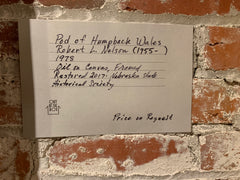 Pod of Humpback Wales
Robert L. Nelson (1955- )
1978
Oil on Canvas, Framed
Restored 2017: Nebraska State
Historical Society
Price on Request